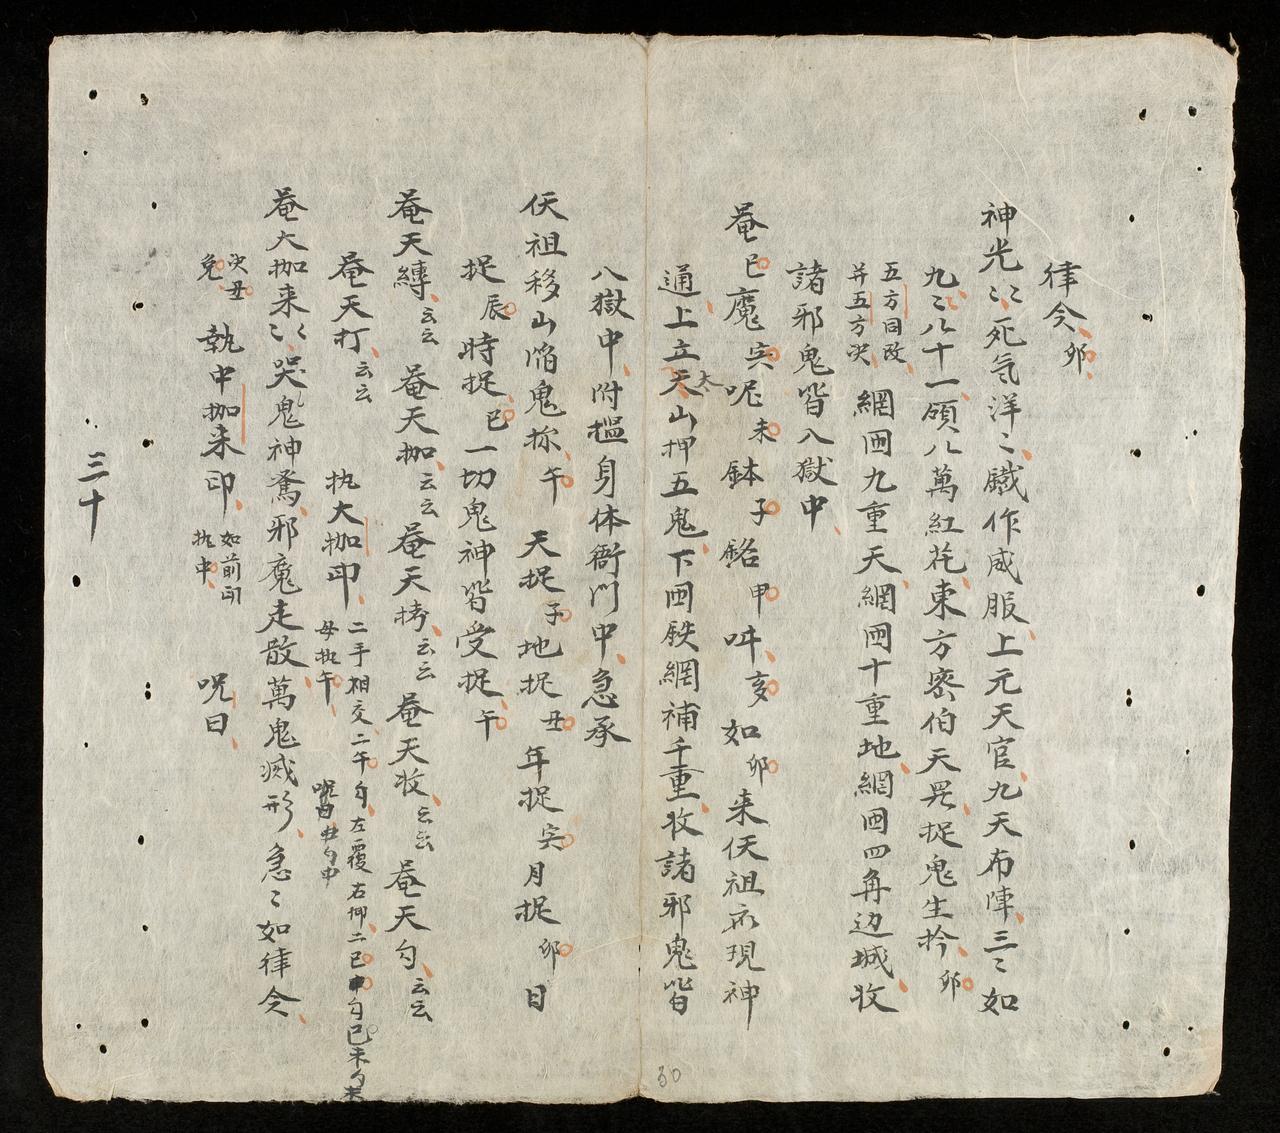 律令卯
神光〻死气洋〻鐡作咸服上元天官九天布陣三〻如
九〻八十一碩八萬紅花東方密伯天罡捉鬼生肣卯
五方同改
并五方决
網国九重天網国十重地網国四角边城收
諸邪鬼皆入獄中
奄巳魔寅呢未鉢子銘甲吽亥如卯来伏祖亦現神
通上立天太山押五鬼下国鉄網補千重收諸邪鬼皆
八獄中附搵身体衙門中急承
伏祖移山陷鬼捺午 天捉子地捉丑 年捉寅月捉卯日
捉辰時捉巳一切鬼神皆受捉午
奄天縛云云 奄天枷云云 奄天拷云云 奄天收云云 奄天勾云云
奄天打云云 执大枷印
二手相交二午勾左覆右仰二巳申勾巳未勾未
母执午
奄大枷来〻哭鬼神驚邪魔走散萬鬼滅形急〻如律令
次丑
免
執中枷来印
如前印
执中
呪曰
三十
30